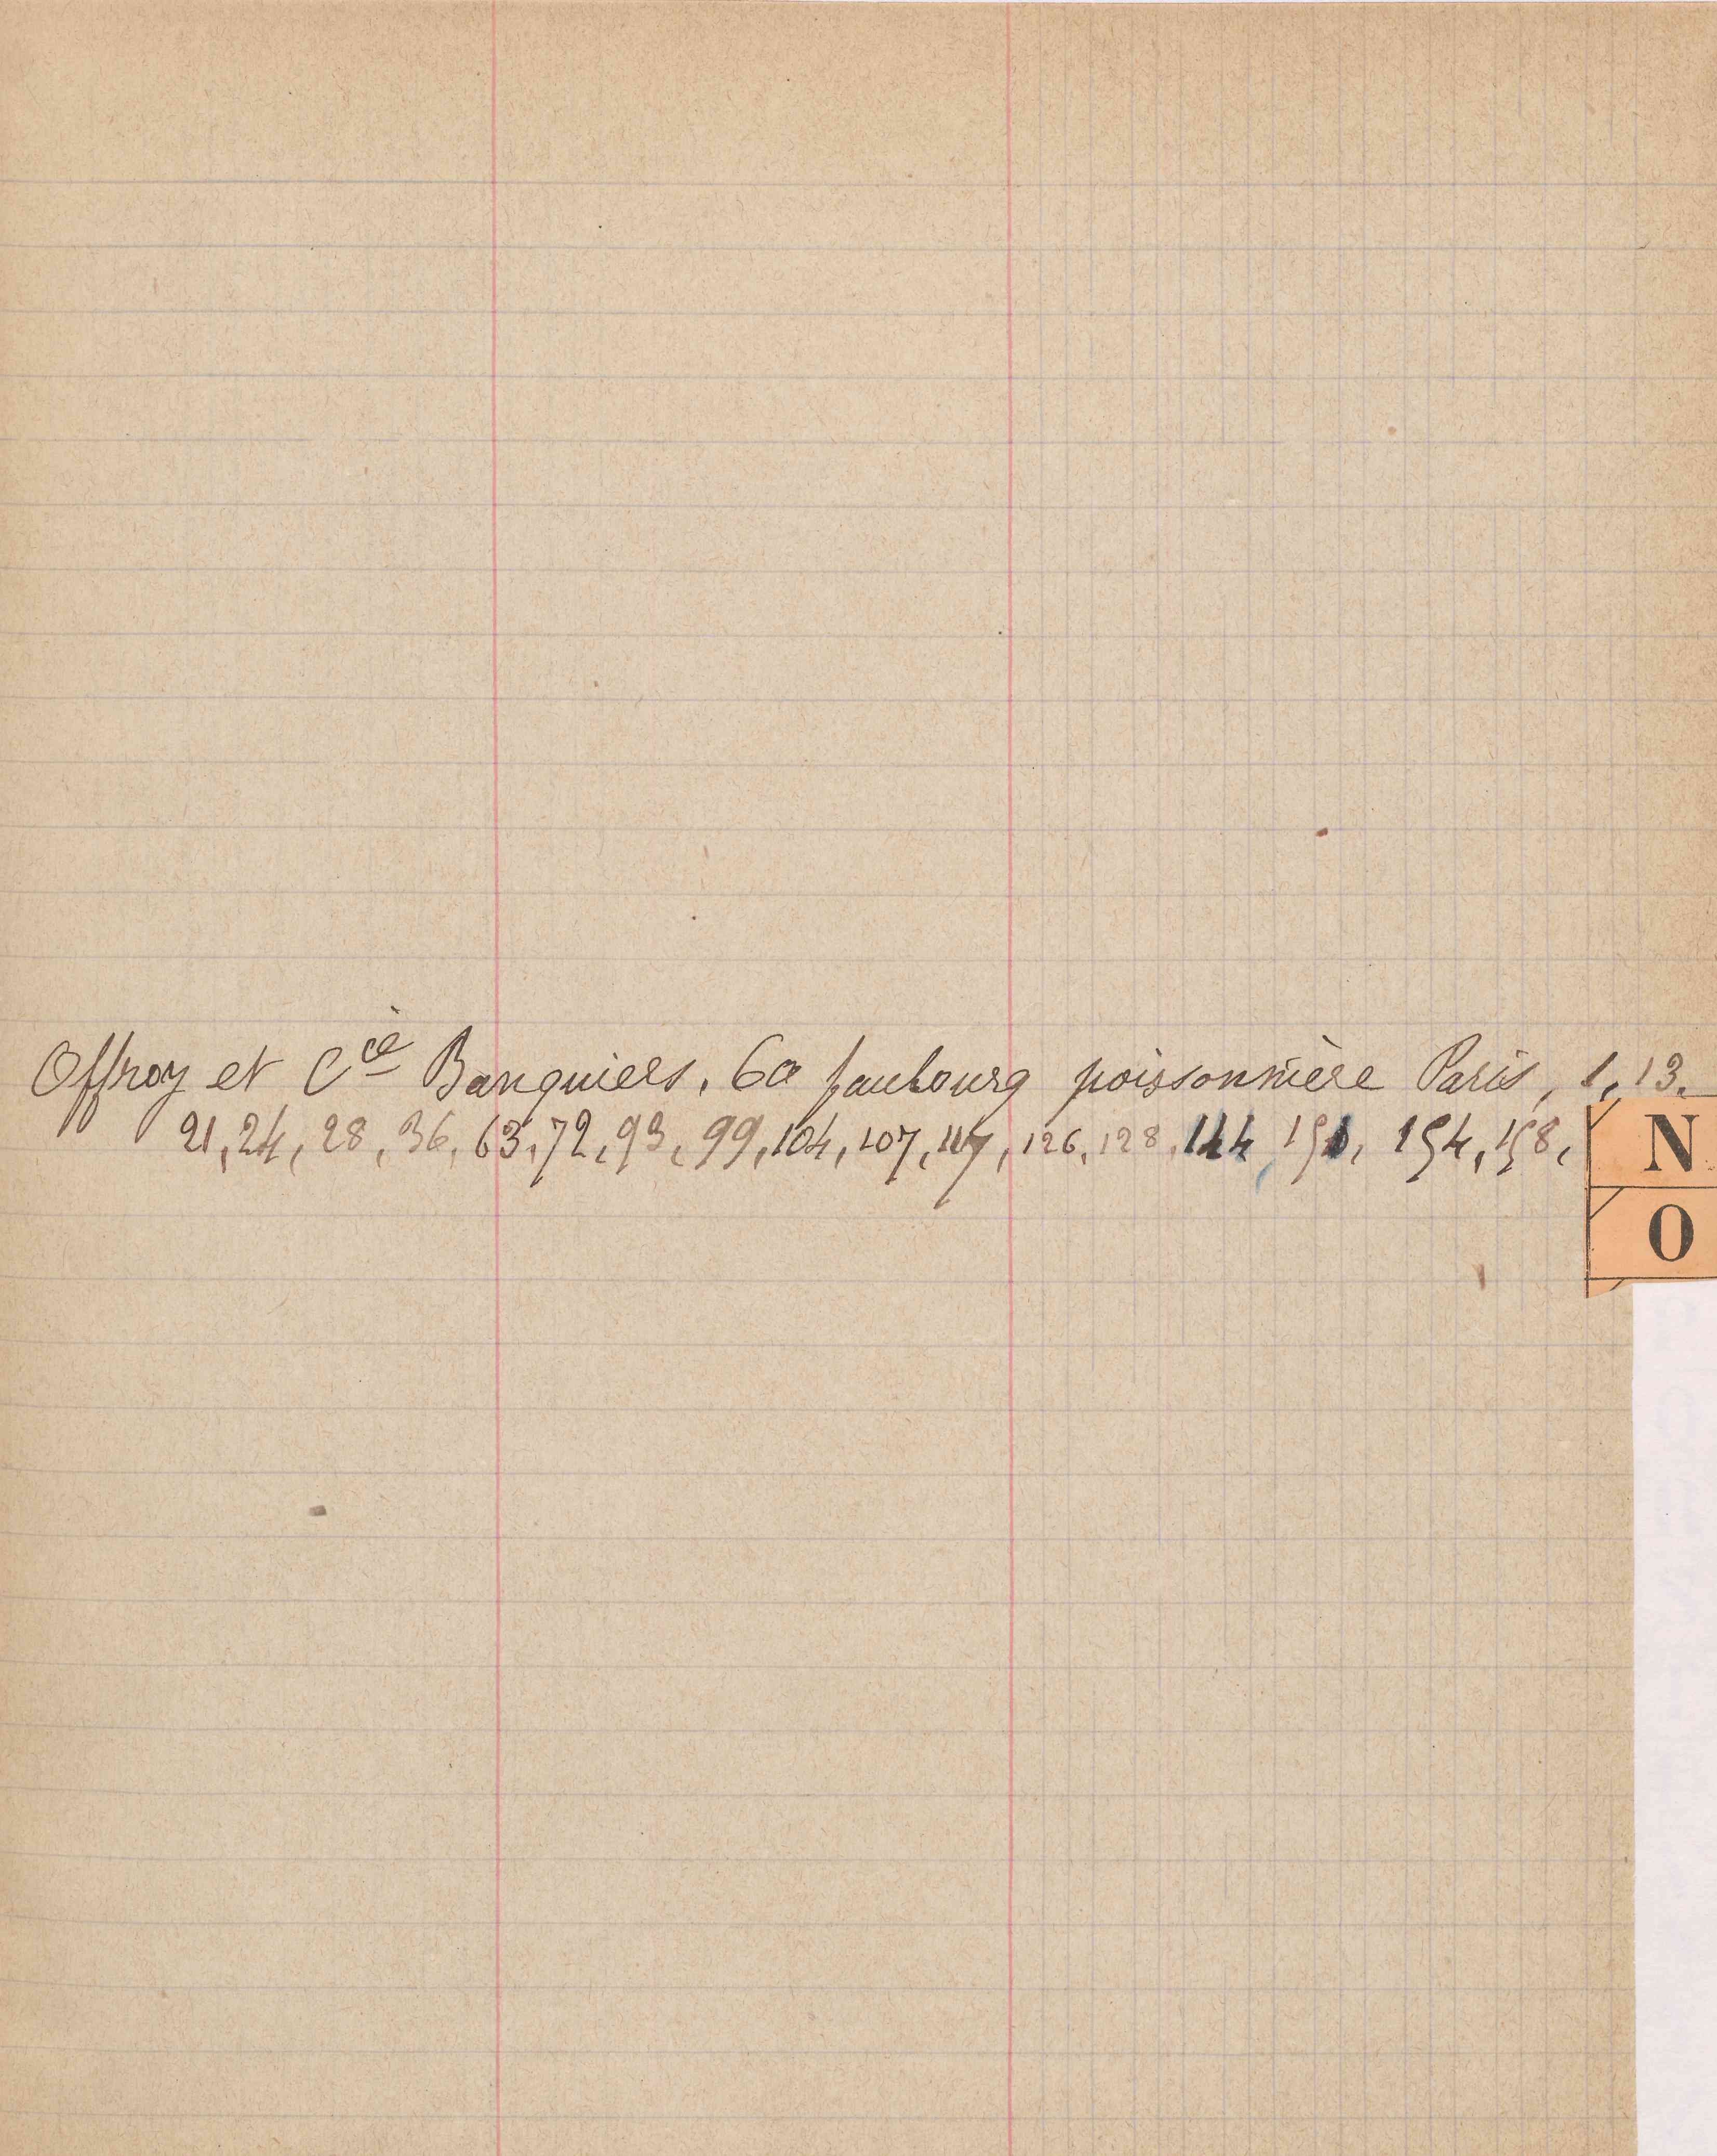 Offroy et Cie Banquiers, 60 faubourg poissonnière Paris, 1, 13,
21, 24, 28, 36, 63, 72, 93, 99, 104, 107, 126, 128, 144, 194,
N
O